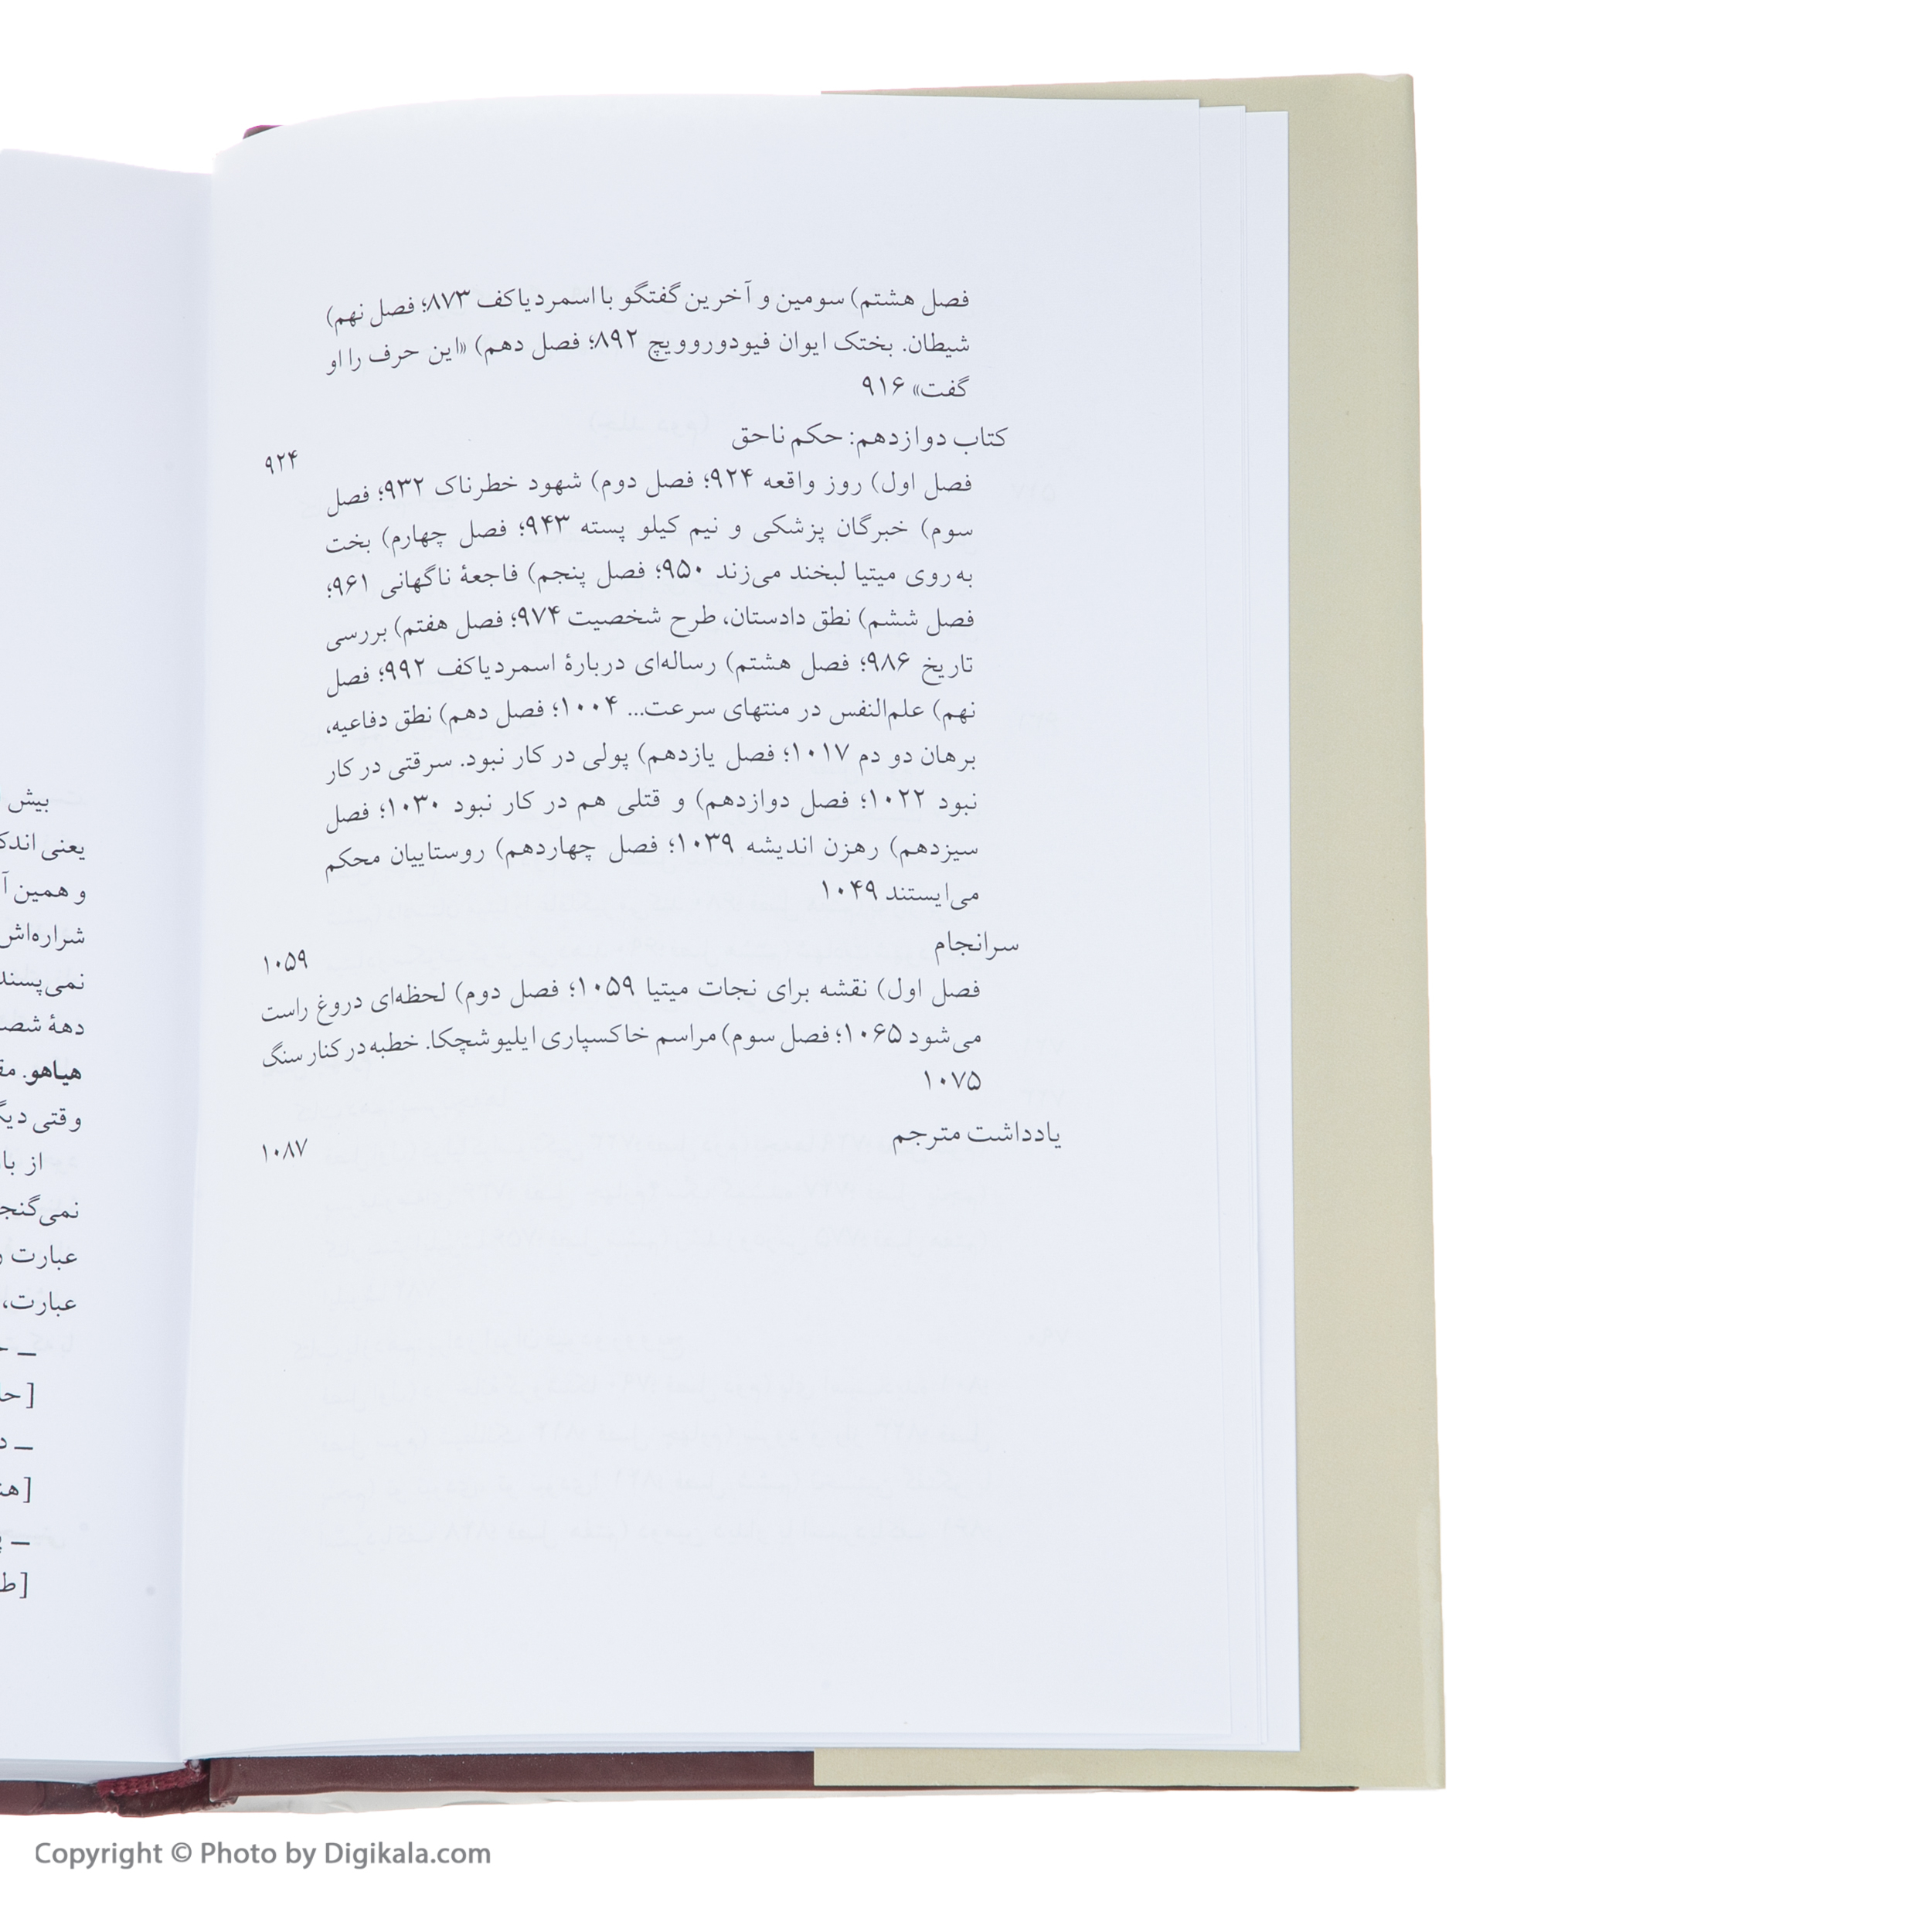 فصل هشتم) سومین و آخرین گفتگو با اسمردیاکف ۸۷۳؛ فصل نهم)
شیطان. بختک ایوان فیودوروویچ ۸۹۲؛ فصل دهم) «این حرف را او
گفت» ۹۱۶
کتاب دوازدهم: حکم ناحق ۹۲۴
فصل اول) روز واقعه ۹۲۴؛ فصل دوم) شهود خطرناک ۹۳۲؛ فصل
سوم) خبرگان پزشکی و نیم کیلو پسته ۹۴۳؛ فصل چهارم) بخت
به روی میتیا لبخند می‌زند ۹۵۰؛ فصل پنجم) فاجعهٔ ناگهانی ۹۶۱؛
فصل ششم) نطق دادستان، طرح شخصیت ۹۷۴؛ فصل هفتم) بررسی
تاریخ ۹۸۶؛ فصل هشتم) رساله‌ای دربارهٔ اسمردیاکف ۹۹۲؛ فصل
نهم) علم‌النفس در منتهای سرعت... ۱۰۰۴؛ فصل دهم) نطق دفاعیه،
برهان دو دم ۱۰۱۷؛ فصل یازدهم) پولی در کار نبود. سرقتی در کار
نبود ۱۰۲۲؛ فصل دوازدهم) و قتلی هم در کار نبود ۱۰۳۰؛ فصل
سیزدهم) رهزن اندیشه ۱۰۳۹؛ فصل چهاردهم) روستاییان محکم
می‌ایستند ۱۰۴۹
سرانجام ۱۰۵۹
فصل اول) نقشه برای نجات میتیا ۱۰۵۹؛ فصل دوم) لحظه‌ای دروغ راست
می‌شود ۱۰۶۵؛ فصل سوم) مراسم خاکسپاری ایلیوشچکا. خطبه در کنار سنگ
۱۰۷۵
یادداشت مترجم ۱۰۸۷
بیش
یعنی
و همین
شراره‌اش
دههٔ
هیاهو.
وقتی
از
عبارت
عبارت،
Copyright © Photo by Digikala.com